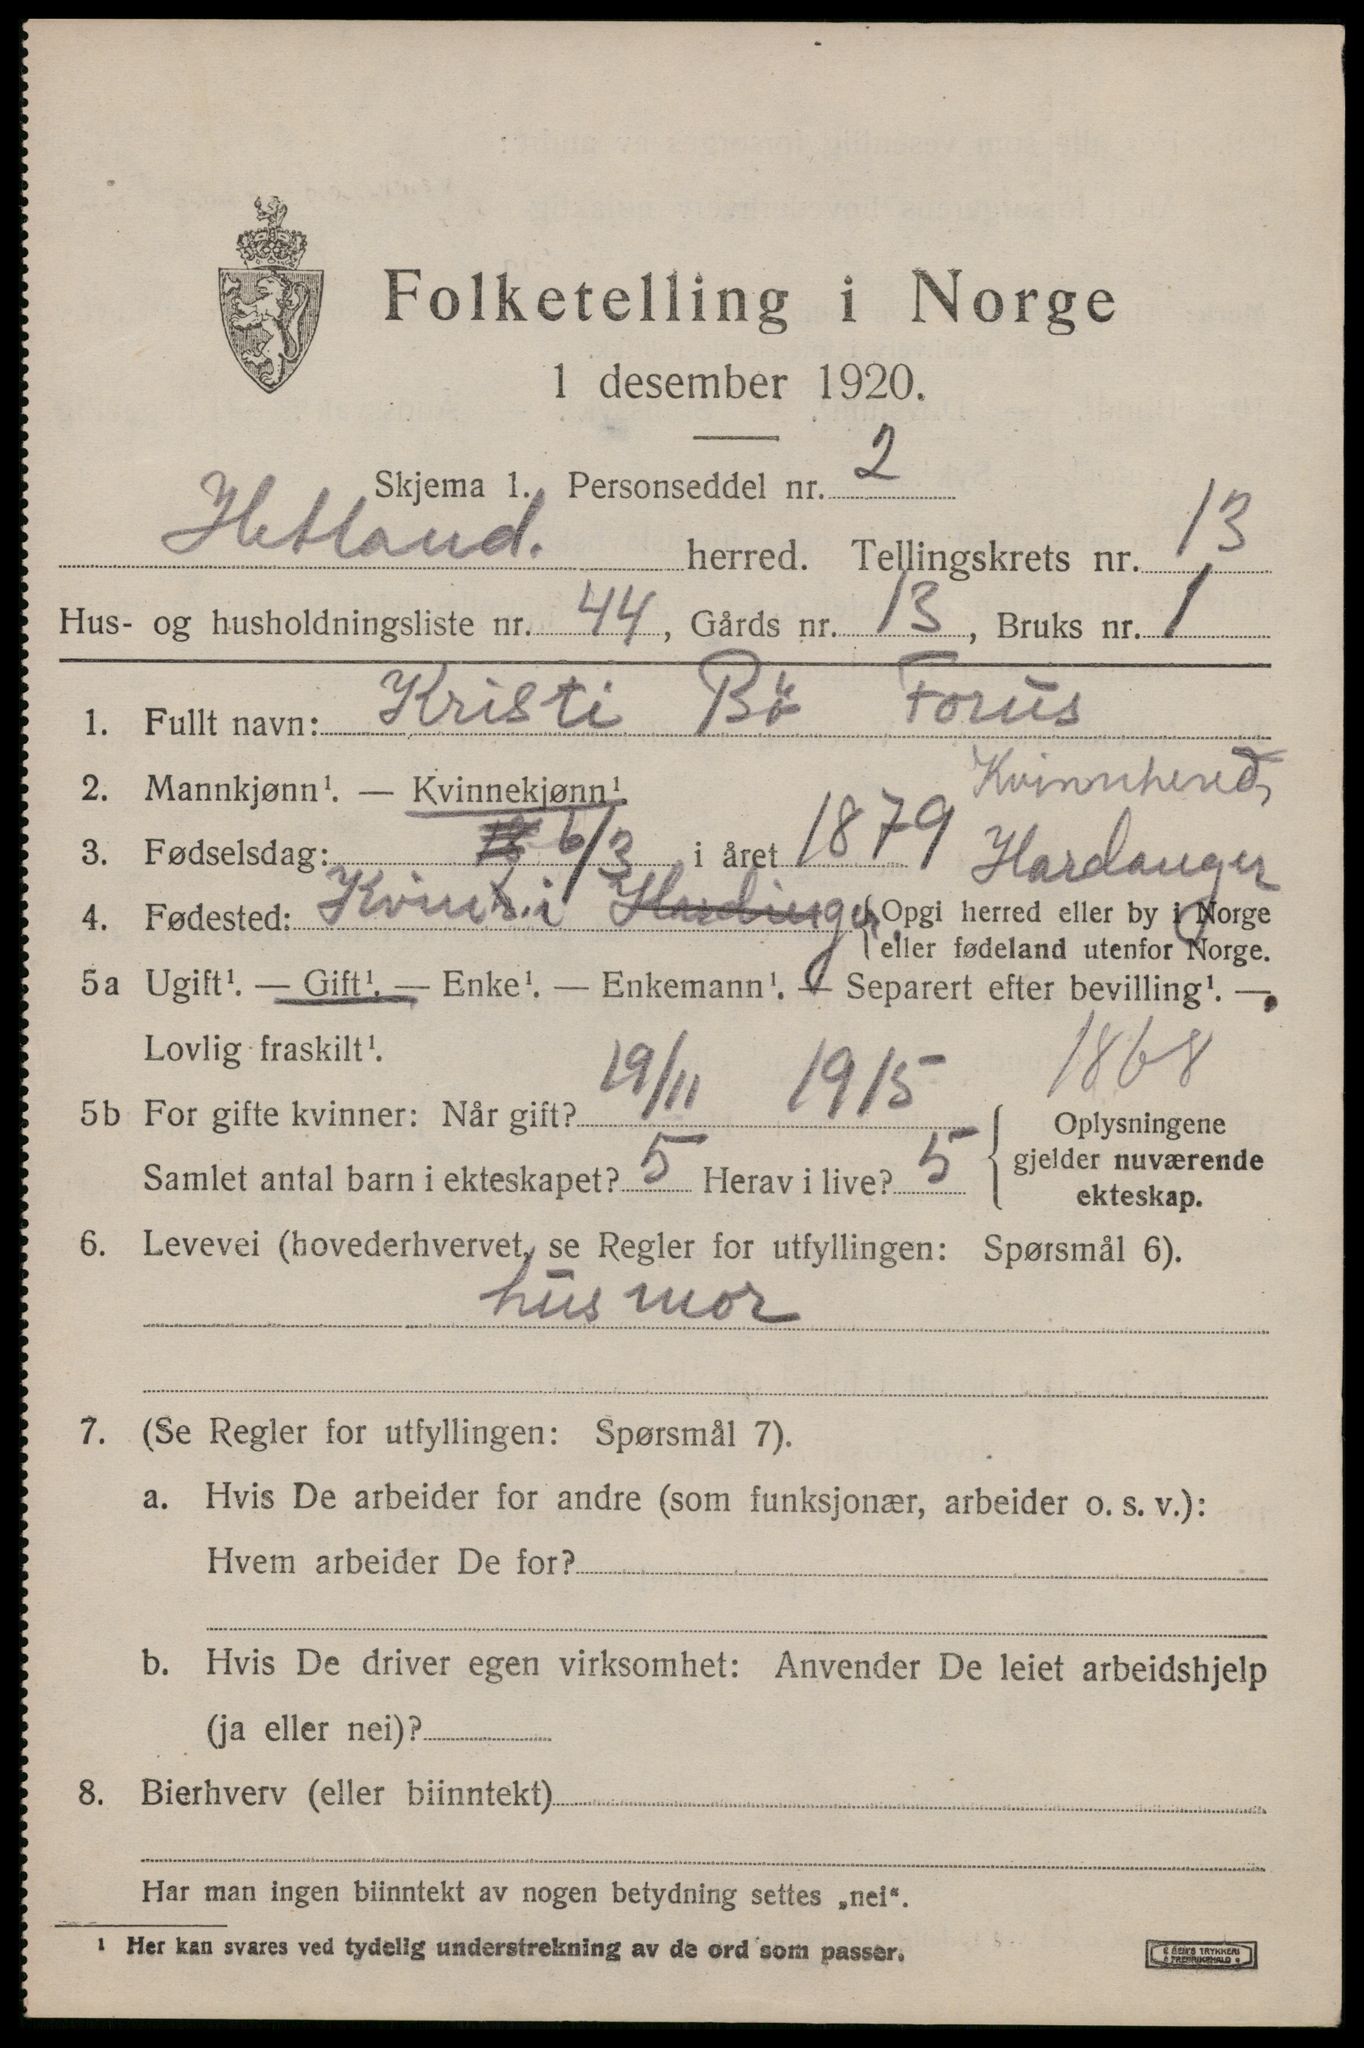 Folketelling i Norge
1 desember 1920.
Skjema 1. Personseddel nr. 2
Hetland. herred. Tellingskrets nr. 13
Hus- og husholdningsliste nr. 44, Gårds nr. 13, Bruks nr. 1
1. Fullt navn: Kristi Bö Forus
2. Mannkjønn¹. — Kvinnekjønn¹ Kvinnhered,
3. Fødselsdag: 6/3 i året 1879 Hardanger
4. Fødested: i Hardinger. Opgi herred eller by i Norge
eller fødeland utenfor Norge.
5a Ugift¹. — Gift¹. — Enke¹. — Enkemann¹. — Separert efter bevilling¹. —
Lovlig fraskilt¹. 1868
5b For gifte kvinner: Når gift? 19/11 1915
Samlet antal barn i ekteskapet? 5 Herav i live? 5
Oplysningene
gjelder nuværende
ekteskap.
6. Levevei (hovederhvervet, se Regler for utfyllingen: Spørsmål 6).
husmor
7. (Se Regler for utfyllingen: Spørsmål 7).
a. Hvis De arbeider for andre (som funksjonær, arbeider o. s. v.):
Hvem arbeider De for?
b. Hvis De driver egen virksomhet: Anvender De leiet arbeidshjelp
(ja eller nei)?
8. Bierhverv (eller biinntekt)
Har man ingen biinntekt av nogen betydning settes „nei“.
¹ Her kan svares ved tydelig understrekning av de ord som passer.